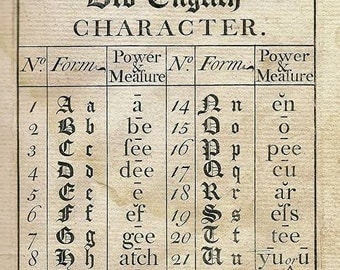 Old English
CHARACTER.
Nº Form Power & Meaſure Nº Form Power & Meaſure
1 A a ā 14 N n ĕn
2 B b bē 15 O o ō
3 C c ſēē 16 P p pee
4 D d dēē 17 Q q cū
5 E e ē 18 R r ăr
6 F f ĕf 19 S s eſs
7 G g gēē 20 T t tēē
8 H h atch 21 U u yū or ū